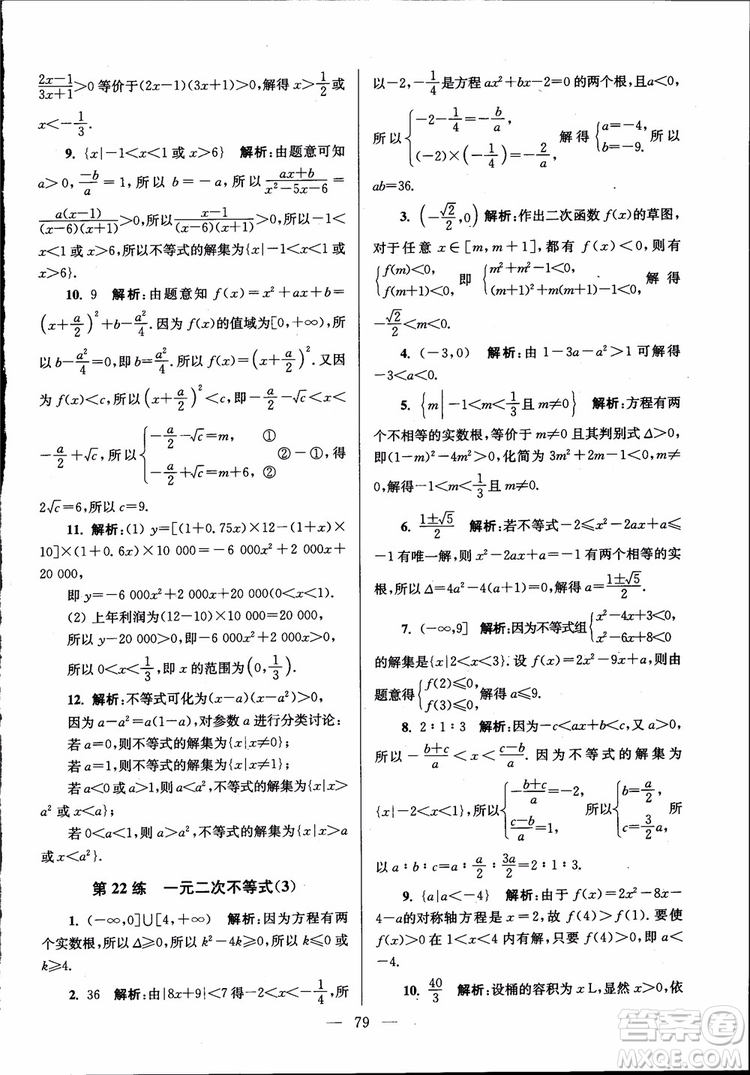 (2x-1)/(3x+1)>0 等价于(2x-1)(3x+1)>0，解得 x>1/2 或
x<-1/3.
9. {x|-1<x<1 或 x>6}　解析:由题意可知
a>0，-b/a=1，所以 b=-a，所以 (ax+b)/(x²-5x-6)=
a(x-1)/((x-6)(x+1))>0，所以 (x-1)/((x-6)(x+1))>0，所以-1<
x<1 或 x>6，所以不等式的解集为{x|-1<x<1 或
x>6}.
10. 9　解析:由题意知 f(x)=x²+ax+b=
(x+a/2)²+b-a²/4. 因为 f(x)的值域为[0,+∞)，所
以 b-a²/4=0，即 b=a²/4. 所以 f(x)=(x+a/2)². 又因
为 f(x)<c，即(x+a/2)²<c，即-a/2-√c<x<
-a/2+√c，所以{-a/2-√c=m，① -a/2+√c=m+6，② ②-①，得
2√c=6，所以 c=9.
11. 解析:(1) y=[(1+0.75x)×12-(1+x)×
10]×(1+0.6x)×10 000=-6 000x²+2 000x+
20 000，
即 y=-6 000x²+2 000x+20 000(0<x<1).
(2) 上年利润为(12-10)×10 000=20 000.
所以 y-20 000>0，即-6 000x²+2 000x>0，
所以 0<x<1/3，即 x 的范围为(0,1/3).
12. 解析:不等式可化为(x-a)(x-a²)>0.
因为 a-a²=a(1-a)，对参数 a 进行分类讨论:
若 a=0，则不等式的解集为{x|x≠0}；
若 a=1，则不等式的解集为{x|x≠1}；
若 a<0 或 a>1，则 a<a²，不等式的解集为{x|x>
a² 或 x<a}；
若 0<a<1，则 a>a²，不等式的解集为{x|x>a
或 x<a²}.
第 22 练　一元二次不等式(3)
1. (-∞,0]∪[4,+∞)　解析:因为方程有两
个实数根，所以 Δ≥0，所以 k²-4k≥0，所以 k≤0 或
k≥4.
2. 36　解析:由|8x+9|<7 得-2<x<-1/4，所
以-2，-1/4是方程 ax²+bx-2=0 的两个根，且a<0，
所以{-2-1/4=-b/a，(-2)×(-1/4)=-2/a，解得{a=-4，b=-9. 所以
ab=36.
3. (-√2/2,0)　解析:作出二次函数 f(x)的草图，
对于任意 x∈[m,m+1]，都有 f(x)<0，则有
{f(m)<0，f(m+1)<0，即{m²+m²-1<0，(m+1)²+m(m+1)-1<0，解得
-√2/2<m<0.
4. (-3,0)　解析:由 1-3a-a²>1可解得
-3<a<0.
5. {m|-1<m<1/3且 m≠0}　解析:方程有两
个不相等的实数根，等价于 m≠0 且其判别式 Δ>0，
即(1-m)²-4m²>0，化简为 3m²+2m-1<0，解得
-1<m<1/3.
6. (1±√5)/2　解析:若不等式-2≤x²-2ax+a≤
-1 有唯一解，则 x²-2ax+a=-1 有两个相等的实
根，所以 Δ=4a²-4(a+1)=0，解得 a=(1±√5)/2.
7. (-∞,9]　解析:因为不等式组{x²-4x+3<0，x²-6x+8<0
的解集是{x|2<x<3}. 设 f(x)=2x²-9x+a，则由
题意得{f(2)≤0，f(3)≤0，解得 a≤9.
8. 2∶1∶3　解析:因为-c<ax+b<c，又 a>0，
所以 -(b+c)/a<x<(c-b)/a. 因为不等式的解集为
{x|-2<x<1}，所以{-(b+c)/a=-2，(c-b)/a=1，所以{b=a/2，c=3/2a，所
以 a∶b∶c=a∶a/2∶3a/2=2∶1∶3.
9. {a|a<-4}　解析:由于 f(x)=2x²-8x-4-a
的对称轴方程为 x=2，所以 f(4)>f(1). 要使
f(x)>0 在 1<x<4 内有解，只要 f(4)>0，即 a<
-4.
10. 40/3　解析:设桶的容积为 x L，显然 x>0，依
— 79 —
答案圈
MXQE.COM